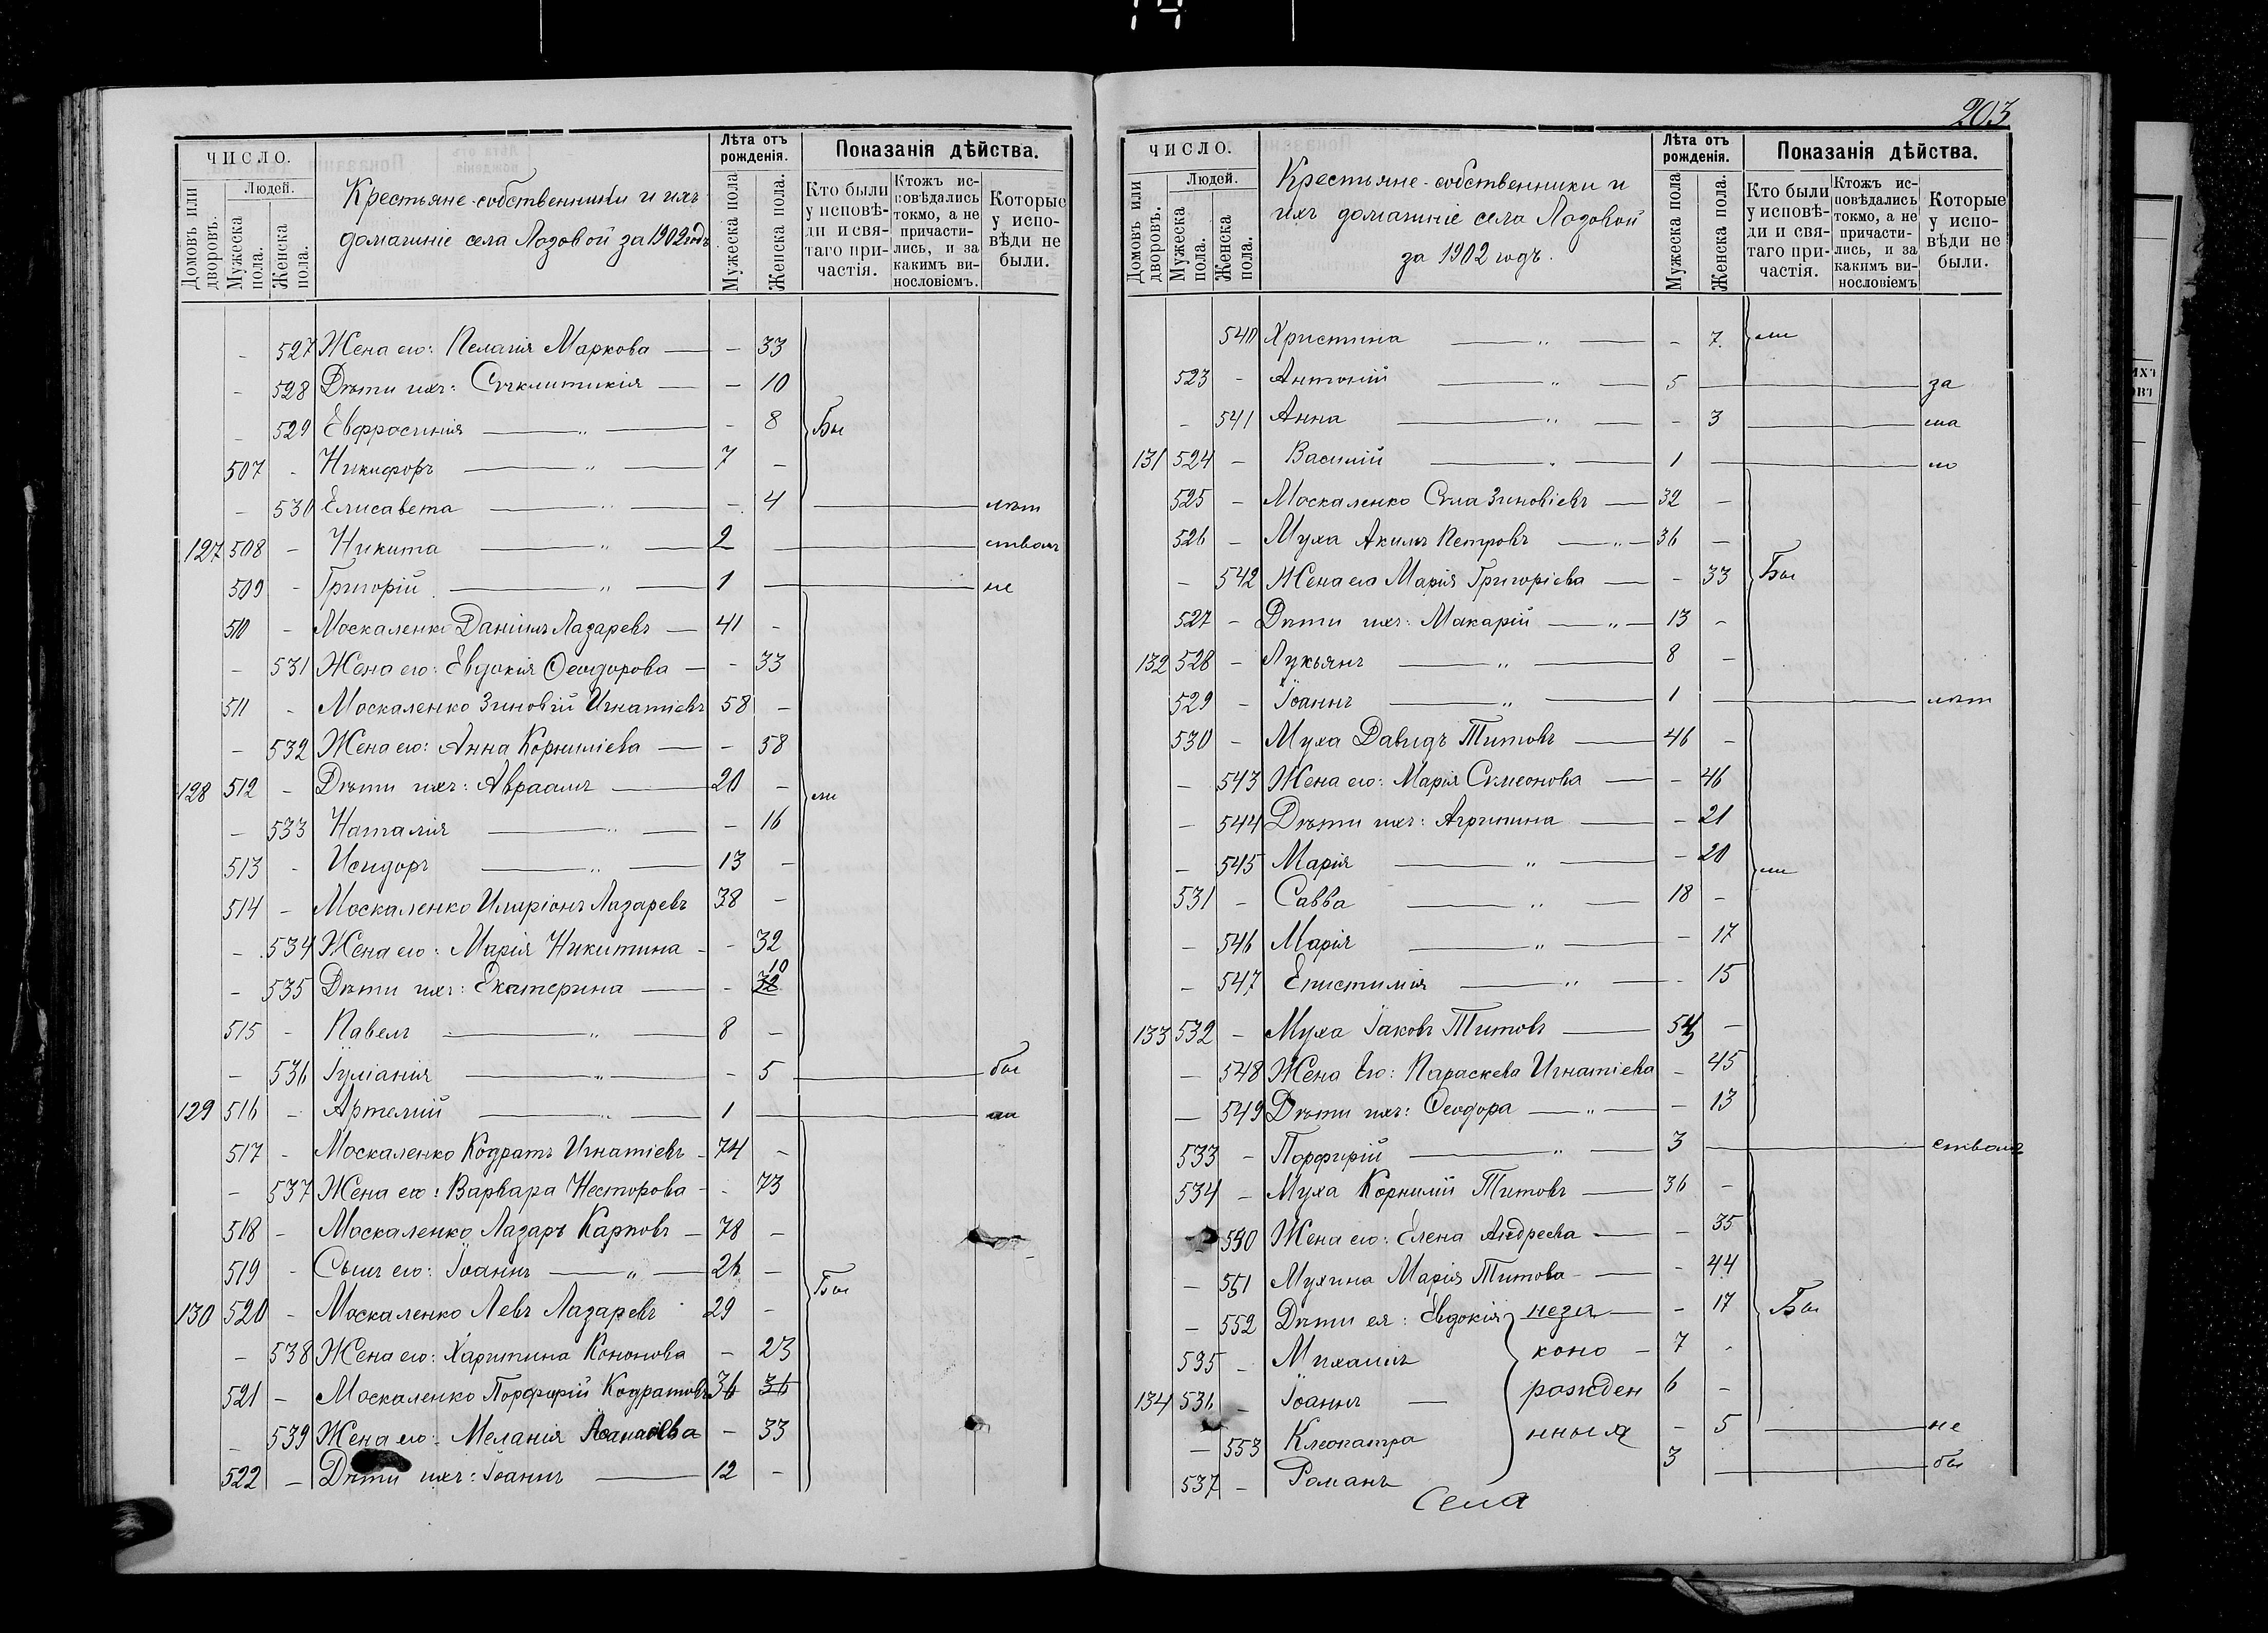 203
ЧИСЛО.
Людей.
Домовъ или дворовъ.
Мужеска пола.
Женска пола.
Крестьяне-собственники и ихъ
домашніе села Лозовой за 1902 годъ
Лѣта отъ рожденія.
Мужеска пола
Женска пола.
Показанія дѣйства.
Кто были у исповѣди и святаго причастія.
Ктожъ исповѣдались токмо, а не причастились, и за какимъ винословіемъ.
Которые у исповѣди не были.
- 527 Жена его: Пелагія Маркова — - 33
- 528 Дѣти ихъ: Сѵнклитикія — - 10
- 529 Евфросинія — „ — - 8 Бы
507 - Никифоръ — „ — 7 -
- 530 Елисавета — „ — - 4 — лѣт
127 508 - Никита — „ — 2 — ствомъ
509 - Григорій — „ — 1 — не
510 - Москаленко Даніилъ Лазаревъ — 41 -
- 531 Жена его: Евдокія Ѳеодорова — - 33
511 - Москаленко Зиновій Игнатіевъ 58 -
- 532 Жена его: Анна Корниліева — - 58
128 512 - Дѣти ихъ: Авраамъ — 20 - ли
- 533 Наталія — „ — - 16
513 - Исидоръ — „ — 13 -
514 - Москаленко Иларіонъ Лазаревъ 38 -
- 534 Жена его: Марія Никитина - - 32
- 535 Дѣти ихъ: Екатерина — - 32 10
515 - Павелъ — „ — 8 -
- 536 Іуліанія — „ — - 5 — бы
129 516 - Артемій — „ — 1 — ли
517 - Москаленко Кодратъ Игнатіевъ - 74 -
- 537 Жена его: Варвара Несторова - - 73
518 - Москаленко Лазаръ Карповъ — 78 -
519 - Сынъ его: Іоаннъ — „ — 26 - Бы
130 520 - Москаленко Левъ Лазаревъ 29 -
- 538 Жена его: Харитина Кононова - 23
521 - Москаленко Порфирій Кодратовъ 36 36
- 539 Жена его: Меланія Аѳанасіева - 33
522 - Дѣти ихъ: Іоаннъ — 12 -
ЧИСЛО.
Людей.
Домовъ или дворовъ.
Мужеска пола.
Женска пола.
Крестьяне-собственники и
ихъ домашніе села Лозовой
за 1902 годъ.
Лѣта отъ рожденія.
Мужеска пола
Женска пола.
Показанія дѣйства.
Кто были у исповѣди и святаго причастія.
Ктожъ исповѣдались токмо, а не причастились, и за какимъ винословіемъ
Которые у исповѣди не были.
540 Христина — „ — - 7. ли
523 - Антоній — „ — 5 — за
- 541 Анна — „ — - 3 — ма
131 524 - Василій — „ — 1 — ло
525 - Москаленко Сѵла Зиновіевъ — 32 -
526 - Муха Акимъ Петровъ — „ — 36 -
- 542 Жена его Марія Григоріева — - 33 Бы
527 - Дѣти ихъ: Макарій — „ — 13 -
132 528 - Лукьянъ — „ — 8 -
529 - Іоаннъ — „ — 1 — лѣт
530 - Муха Давидъ Титовъ — 46 -
- 543 Жена его: Марія Симеонова — - 46
- 544 Дѣти ихъ: Агрипина — - 21
- 545 Марія — „ — - 20 ли
531 - Савва — „ — 18 -
- 546 Марія — „ — - 17
- 547 Епистимія — „ — - 15
133 532 - Муха Іаковъ Титовъ — 54 -
- 548 Жена Его: Параскева Игнатіева - 45
- 549 Дѣти ихъ: Ѳеодора — „ — - 13
533 - Порфирій — „ — 3 — ствомъ
534 - Муха Корнилій Титовъ — 36 -
550 Жена его: Елена Андреева — - 35
- 551 Мухина Марія Титова - — - 44
- 552 Дѣти ея: Евдокія неза — - 17 Бы
535 - Михаилъ коно - 7 -
134 536 - Іоаннъ — рожден 6 -
- 553 Клеопатра нныя - 5 — не
537 - Романъ 3 — бы
Села